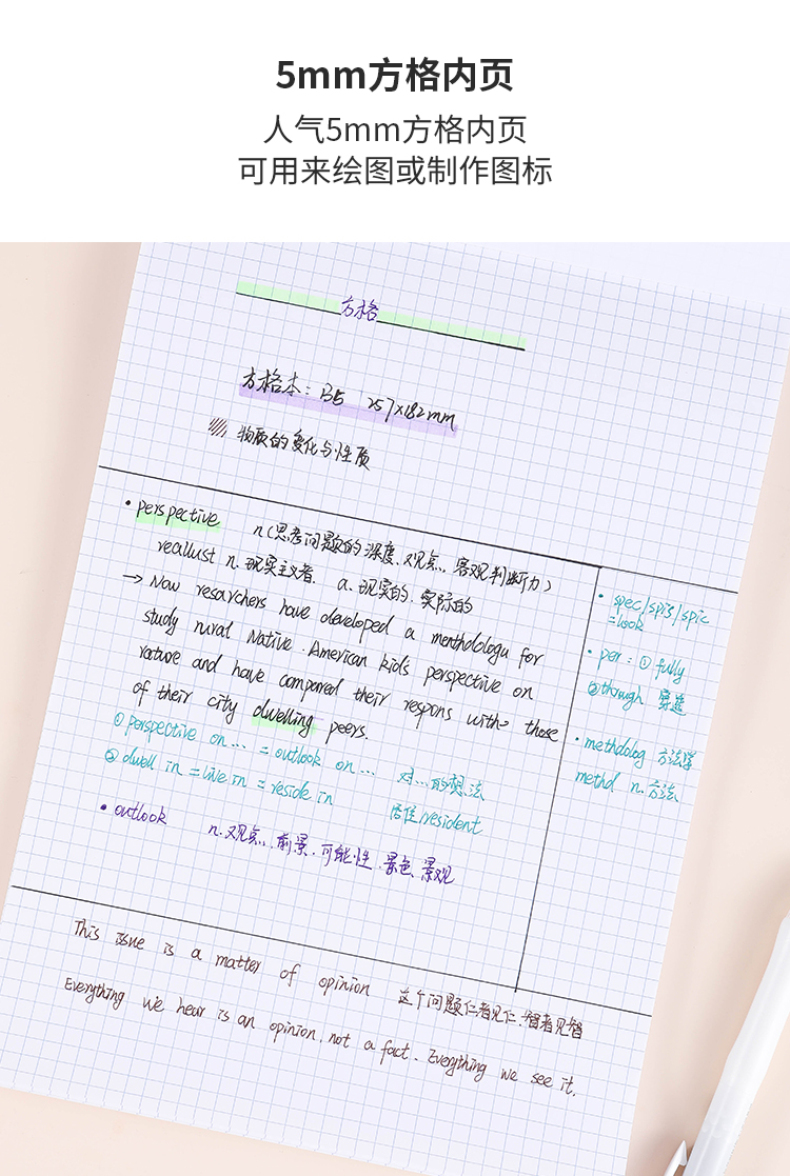 5mm方格内页
人气5mm方格内页
可用来绘图或制作图标
方格
方格本：B5 257×182mm
物质的变化与性质
• perspective n（思考问题的深度、观点、客观判断力）
reallust n. 现实主义者. a. 现实的. 实际的
→ Now resarchers have developed a menthdologu for
study rural Native. American kid's perspective on
nature and have compared their respons with those
of their city dwelling peers.
① perspective on… = outlook on… 对…的想法
② dwell in = live in = reside in 居住/resident
• outlook n. 观点. 前景. 可能性. 景色. 景观
• spec/spis/spic
=look
• per: ① fully
②through 穿透
• methdolog 方法学
methd n. 方法
This issue is a matter of opinion 这个问题仁者见仁.智者见智
Everything we hear is an opinion, not a fact. Everything we see it.